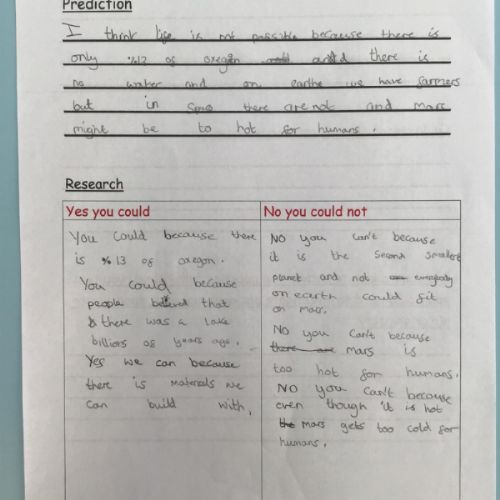 Prediction
I think life is not possible because there is
only %12 of oxegin and there is
no water and on earthe we have farmers
but in there are not and Mars
might be to hot for humans.
Research
Yes you could
You could because there
is %13 of oxegon.
You could because
people believd that
there was a lake
billions of years ago.
Yes we can because
there is materials we
can build with,
No you could not
NO you can't because
it is the second smalest
planet and not everybody
on earth could fit
on mars.
No you can't because
there are mars is
too hot for humans.
NO you can't because
even though it is hot
the mars gets too cold for
humans.